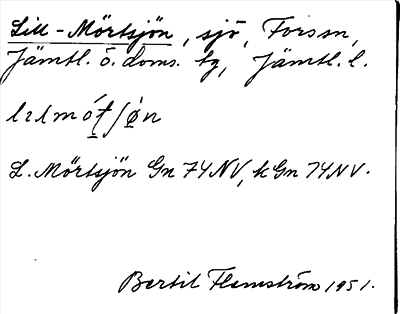 Lill-Mörtsjön, sjö, Forssn,
Jämtl. ö. doms. tg, Jämtl. l.
L. Mörtsjön Gn 74NV, kGn 74NV.
Bertil Flemström 1951.